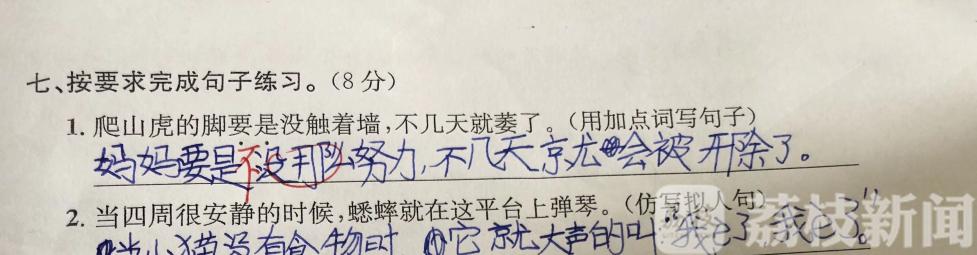 七、按要求完成句子练习。(8分)
1. 爬山虎的脚要是没触着墙,不几天就萎了。(用加点词写句子)
妈妈要是不没那么努力,不几天就会被开除了。
2. 当四周很安静的时候,蟋蟀就在这平台上弹琴。(仿写拟人句)
当小猫没有食物时 它就大声的叫"我 了,我 了"。
荔枝新闻